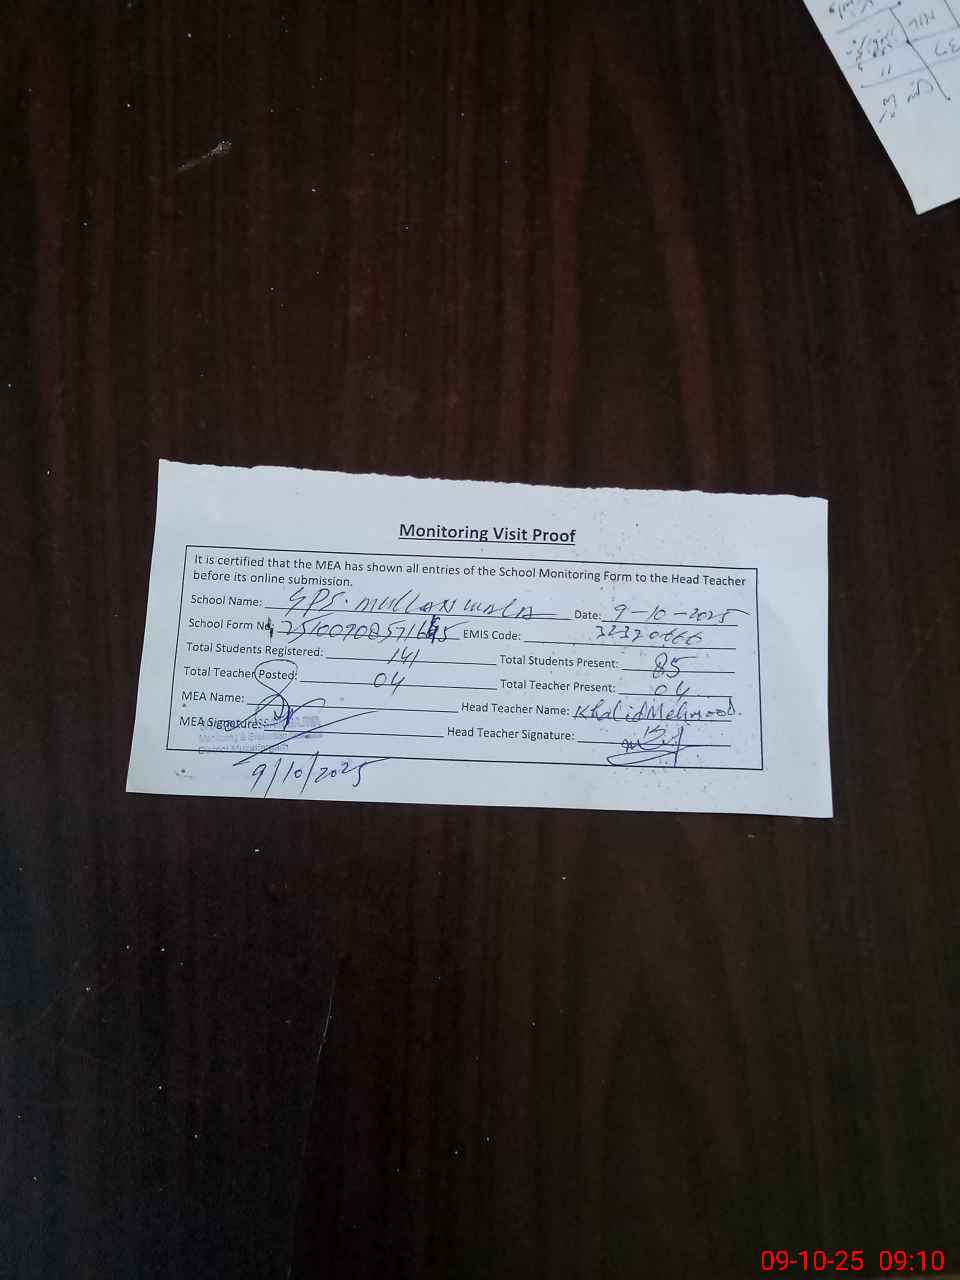 Monitoring Visit Proof
It is certified that the MEA has shown all entries of the School Monitoring Form to the Head Teacher
before its online submission.
School Name: GPS. MULLANWALA Date: 9-10-2025
School Form No. EMIS Code: 32320666
Total Students Registered: 141 Total Students Present: 85
Total Teacher Posted: 04 Total Teacher Present: 04
MEA Name: Head Teacher Name: Khalid Mehmood.
MEA Signature: Head Teacher Signature:
9/10/2025
09-10-25 09:10